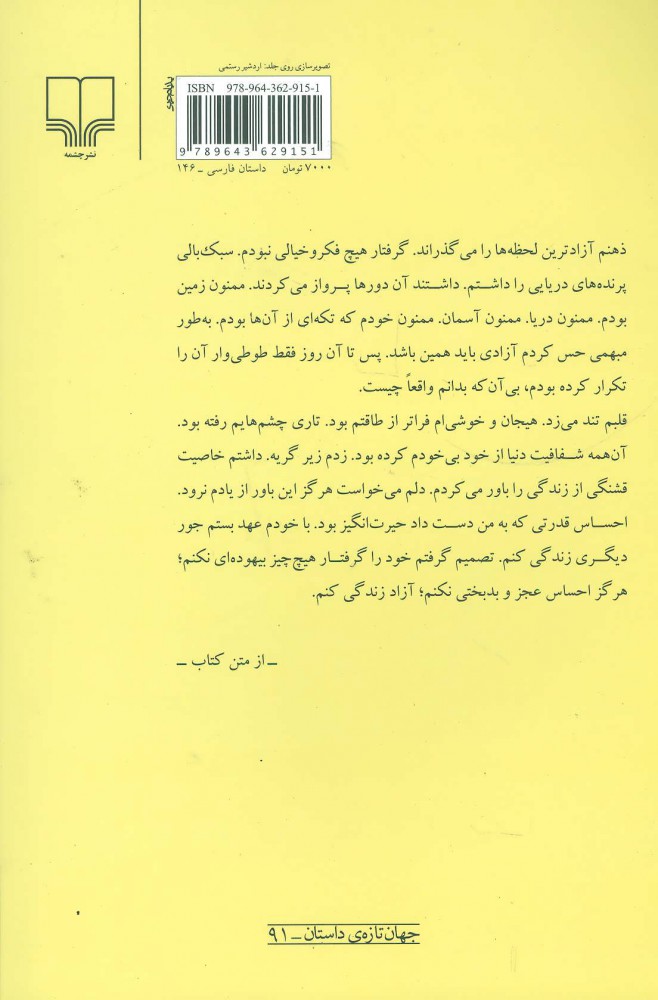 تصویرسازی روی جلد: اردشیر رستمی
ISBN 978-964-362-915-1
9 789643 629151
داستان فارسی ـ ۱۴۶ ۷۰۰۰ تومان
نشرچشمه
ذهنم آزادترین لحظه‌ها را می‌گذراند. گرفتار هیچ فکروخیالی نبودم. سبک‌بالی
پرنده‌های دریایی را داشتم. داشتند آن دورها پرواز می‌کردند. ممنون زمین
بودم. ممنون دریا. ممنون آسمان. ممنون خودم که تکه‌ای از آن‌ها بودم. به‌طور
مبهمی حس کردم آزادی باید همین باشد. پس تا آن روز فقط طوطی‌وار آن را
تکرار کرده بودم، بی‌آن‌که بدانم واقعاً چیست.
قلبم تند می‌زد. هیجان و خوشی‌ام فراتر از طاقتم بود. تاری چشم‌هایم رفته بود.
آن‌همه شفافیت دنیا از خود بی‌خودم کرده بود. زدم زیر گریه. داشتم خاصیت
قشنگی از زندگی را باور می‌کردم. دلم می‌خواست هرگز این باور از یادم نرود.
احساس قدرتی که به من دست داد حیرت‌انگیز بود. با خودم عهد بستم جور
دیگری زندگی کنم. تصمیم گرفتم خود را گرفتار هیچ‌چیز بیهوده‌ای نکنم؛
هرگز احساس عجز و بدبختی نکنم؛ آزاد زندگی کنم.
ـ از متن کتاب ـ
جهان تازه‌ی داستان ـ ۹۱